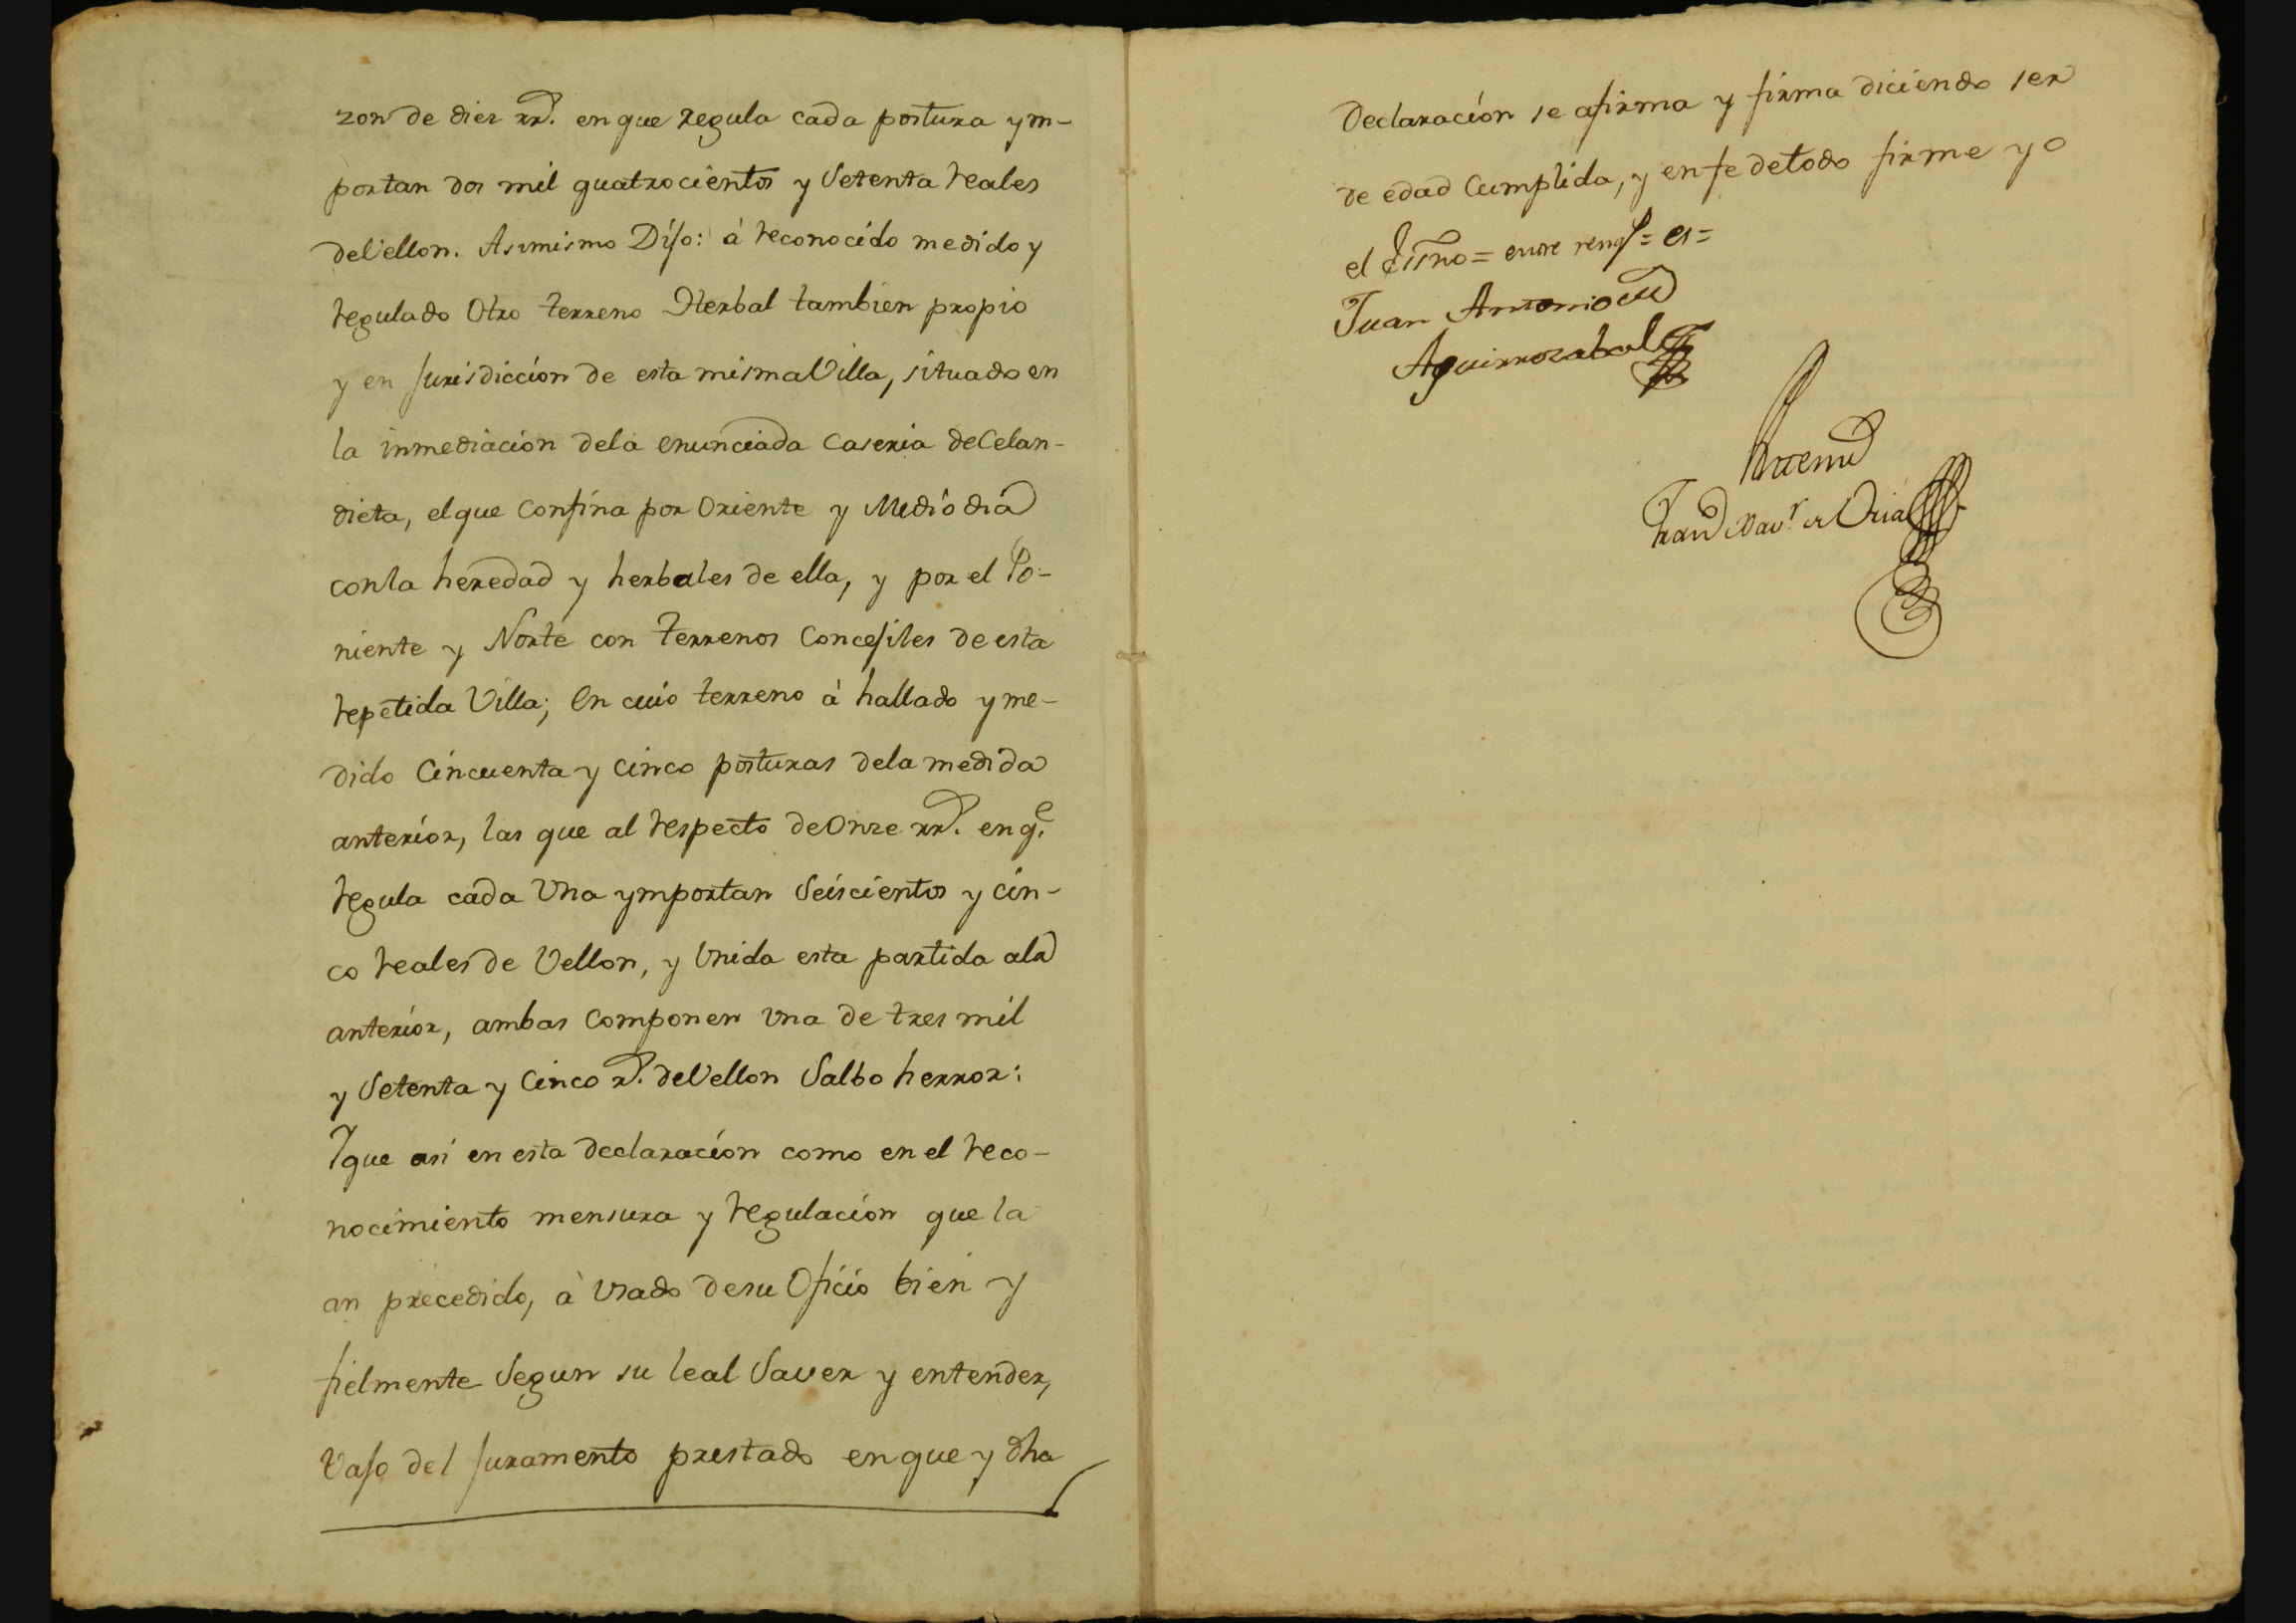 zon de diez rr.^s en que regula cada postura ym-
portan dos mil quatrocientos y Setenta reales
de Vellon. Asimismo Dijo: à reconocido medido y
regulado Otro terreno Herbal tambien propio
y en jurisdiccion de esta misma Villa, situado en
la inmediacion dela enunciada Caseria de Celan-
dieta, el que Confina por Oriente y Mediodia
con la heredad y herbales de ella, y por el Po-
niente y Norte con terrenos Concejiles de esta
repetida Villa; En cuio terreno à hallado y me-
dido Cincuenta y cinco posturas dela medida
anterior, las que al respecto de Onze rr.^s en q.^e
regula cada Una ymportan Seiscientos y cin-
co reales de Vellon, y Unida esta partida ala
anterior, ambas Componen una de tres mil
y Setenta y Cinco r.^s de Vellon Salbo herror:
Y que asi en esta declaracion como en el reco-
nocimiento mensura y regulacion que la
an precedido, à Usado de su Oficio bien y
fielmente Segun su leal Saver y entender,
Vajo del juramento prestado en que y dha
Declaracion se afirma y firma diciendo ser
de edad Cumplida, y en fe de todo firme yo
el Essno = entre reng.^s = es =
Juan Antonio de
Aguirrezabal
Antemi
Fran.^co Xav.^r de Oria